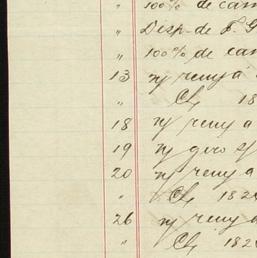 " 100% de cam
" Disp. de F. G
" 100% de cam
13 n/ remy a
" Ch/ 18
18 n/ remy a
19 n/ giro s/
20 n/ remy a
" Ch/ 182
26 n/ remy a
" Ch/ 182